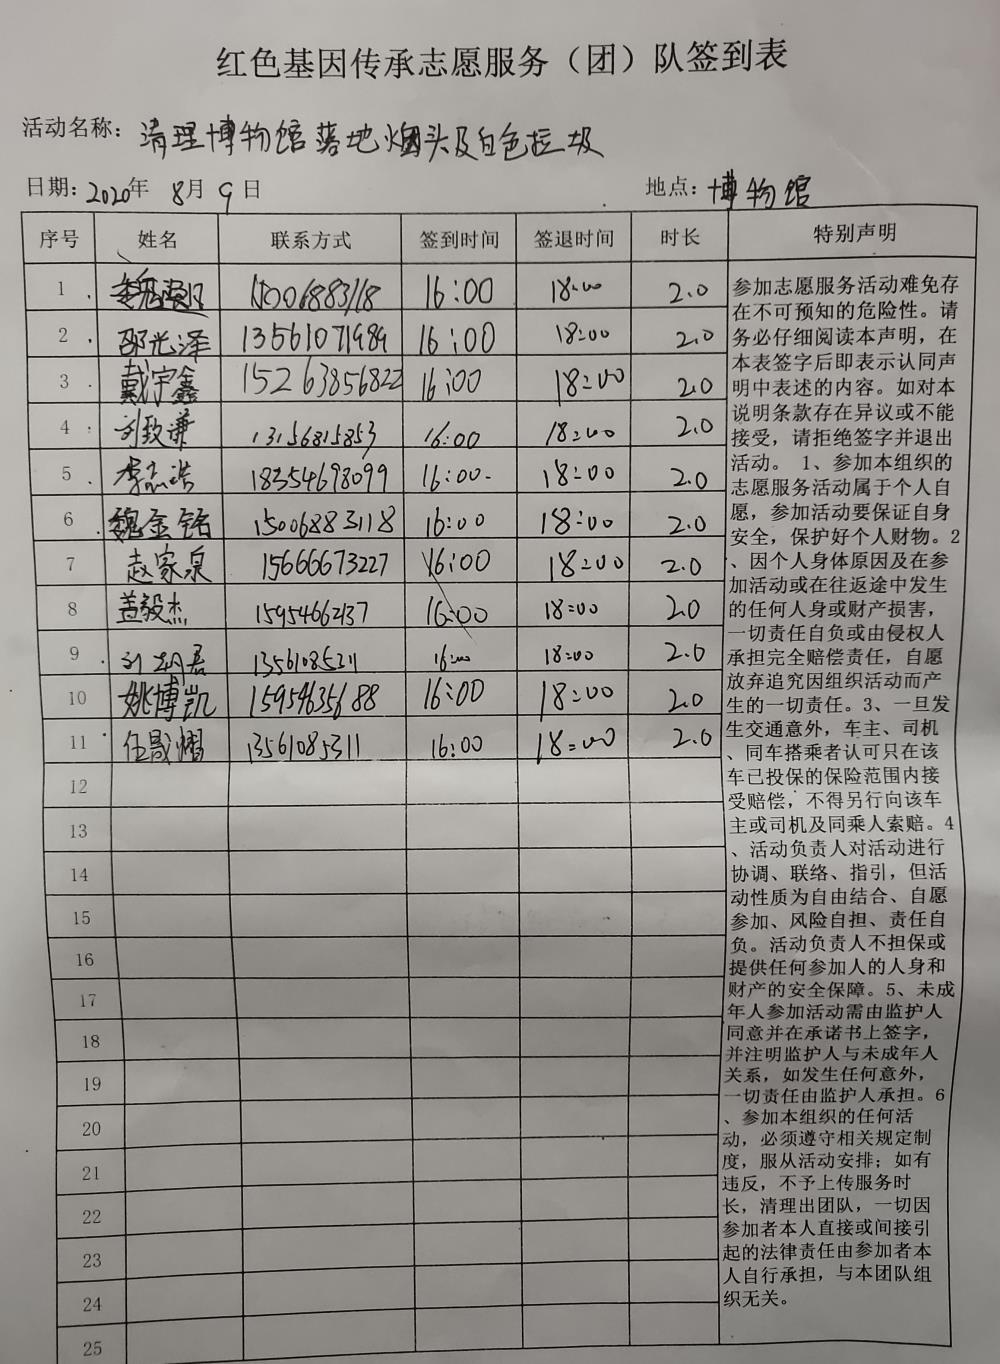 红色基因传承志愿服务（团）队签到表
活动名称：清理博物馆落地烟头及白色垃圾
日期：2020年 8月 9日 地点：博物馆
序号 姓名 联系方式 签到时间 签退时间 时长 特别声明
1 15006883118 16:00 18:00 2.0
2 邵光泽 13561071989 16:00 18:00 2.0
3 戴宇鑫 15263856822 16:00 18:00 2.0
4 刘致谦 13156815853 16:00 18:00 2.0
5 李志浩 18354698099 16:00 18:00 2.0
6 魏金铭 15006883118 16:00 18:00 2.0
7 赵家泉 15666673227 16:00 18:00 2.0
8 盖毅杰 15954662137 16:00 18:00 2.0
9 13561085311 16:00 18:00 2.0
10 姚博凯 15954635688 16:00 18:00 2.0
11 任晟熠 13561085311 16:00 18:00 2.0
12
13
14
15
16
17
18
19
20
21
22
23
24
25
参加志愿服务活动难免存
在不可预知的危险性。请
务必仔细阅读本声明，在
本表签字后即表示认同声
明中表述的内容。如对本
说明条款存在异议或不能
接受，请拒绝签字并退出
活动。 1、参加本组织的
志愿服务活动属于个人自
愿，参加活动要保证自身
安全，保护好个人财物。2
、因个人身体原因及在参
加活动或在往返途中发生
的任何人身或财产损害，
一切责任自负或由侵权人
承担完全赔偿责任，自愿
放弃追究因组织活动而产
生的一切责任。3、一旦发
生交通意外，车主、司机
、同车搭乘者认可只在该
车已投保的保险范围内接
受赔偿，不得另行向该车
主或司机及同乘人索赔。4
、活动负责人对活动进行
协调、联络、指引，但活
动性质为自由结合、自愿
参加、风险自担、责任自
负。活动负责人不担保或
提供任何参加人的人身和
财产的安全保障。5、未成
年人参加活动需由监护人
同意并在承诺书上签字，
并注明监护人与未成年人
关系，如发生任何意外，
一切责任由监护人承担。6
、参加本组织的任何活
动，必须遵守相关规定制
度，服从活动安排；如有
违反，不予上传服务时
长，清理出团队，一切因
参加者本人直接或间接引
起的法律责任由参加者本
人自行承担，与本团队组
织无关。